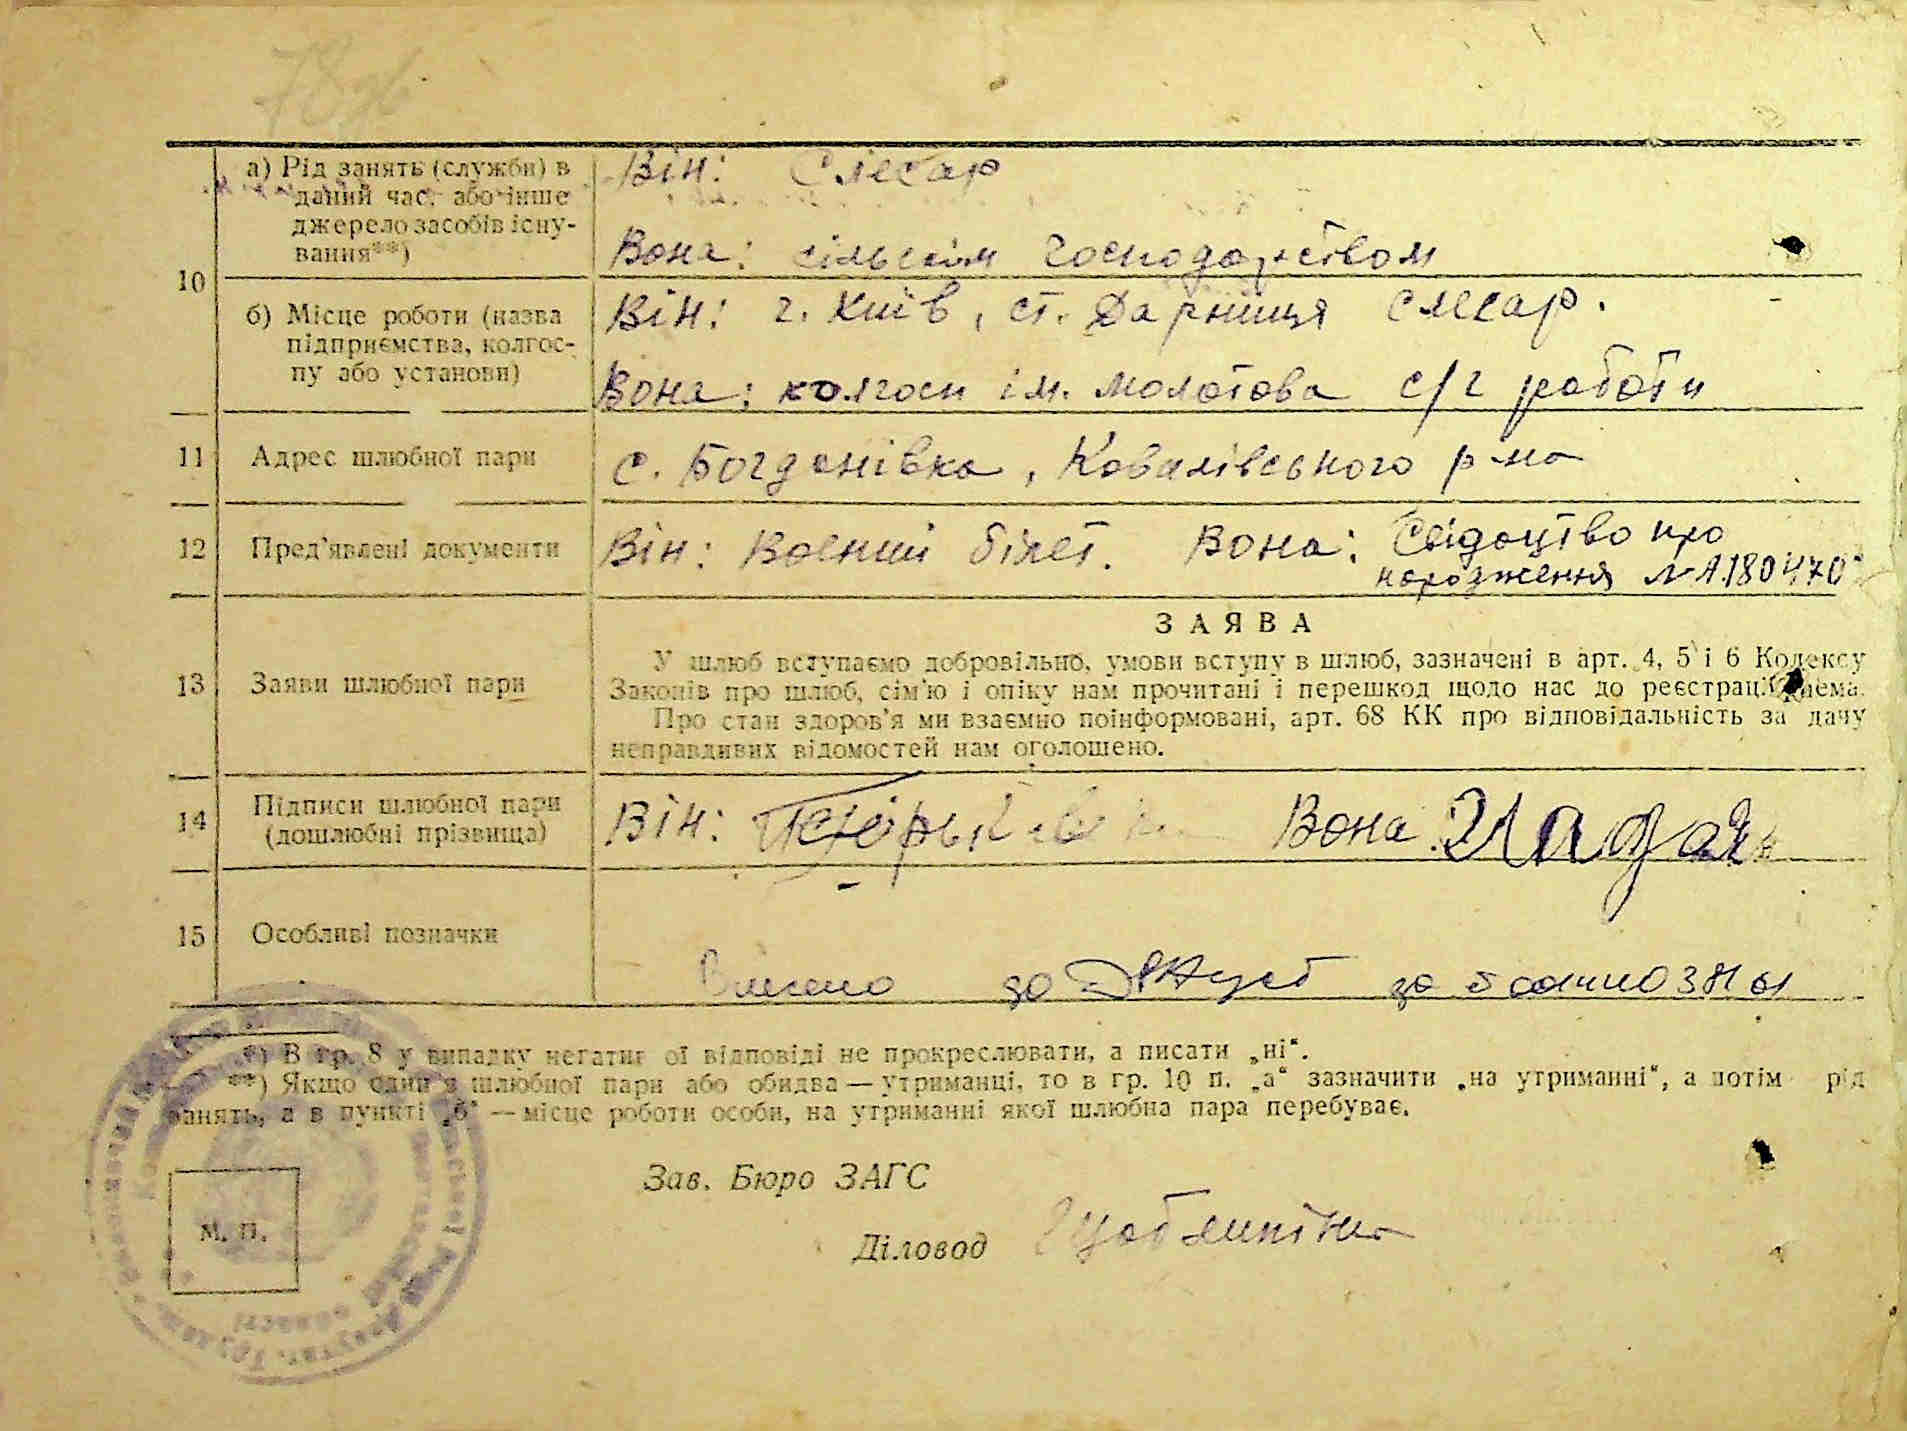 а) Рід занять (служби) в
даний час, або інше
джерело засобів існу-
вання**)
Він: Слесар
Вона: сільським господарством
10
б) Місце роботи (назва
підприємства, колгос-
пу або установи)
Він: г. Київ, ст. Дарниця слесар.
Вона: колгосп ім. Молотова с/г роботи
11 Адрес шлюбної пари
с. Богданівка, Ковалівського р-на
12 Пред’явлені документи
Він: Военний білет. Вона: Свідоцтво про
народження № 180470
ЗАЯВА
13 Заяви шлюбної пари
У шлюб вступаємо добровільно, умови вступу в шлюб, зазначені в арт. 4, 5 і 6 Кодексу
Законів про шлюб, сім’ю і опіку нам прочитані і перешкод щодо нас до реєстрації нема.
Про стан здоров’я ми взаємно поінформовані, арт. 68 КК про відповідальність за дачу
неправдивих відомостей нам оголошено.
14 Підписи шлюбної пари
(дошлюбні прізвища)
Він: Вона:
15 Особливі позначки
до за
*) В гр. 8 у випадку негативної відповіді не прокреслювати, а писати „ні“.
**) Якщо один з шлюбної пари або обидва — утриманці, то в гр. 10 п. „а“ зазначити „на утриманні“, а потім рід
занять, а в пункті „б“ — місце роботи особи, на утриманні якої шлюбна пара перебуває.
Зав. Бюро ЗАГС
М. П.
Діловод
області